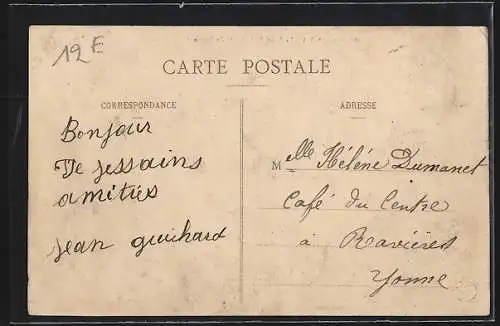 12E
CARTE POSTALE
CORRESPONDANCE
Bonjour
De jessains
amitiés
Jean guichard
ADRESSE
Melle Hélène Dumanet
Café du Centre
à Ravières
Yonne